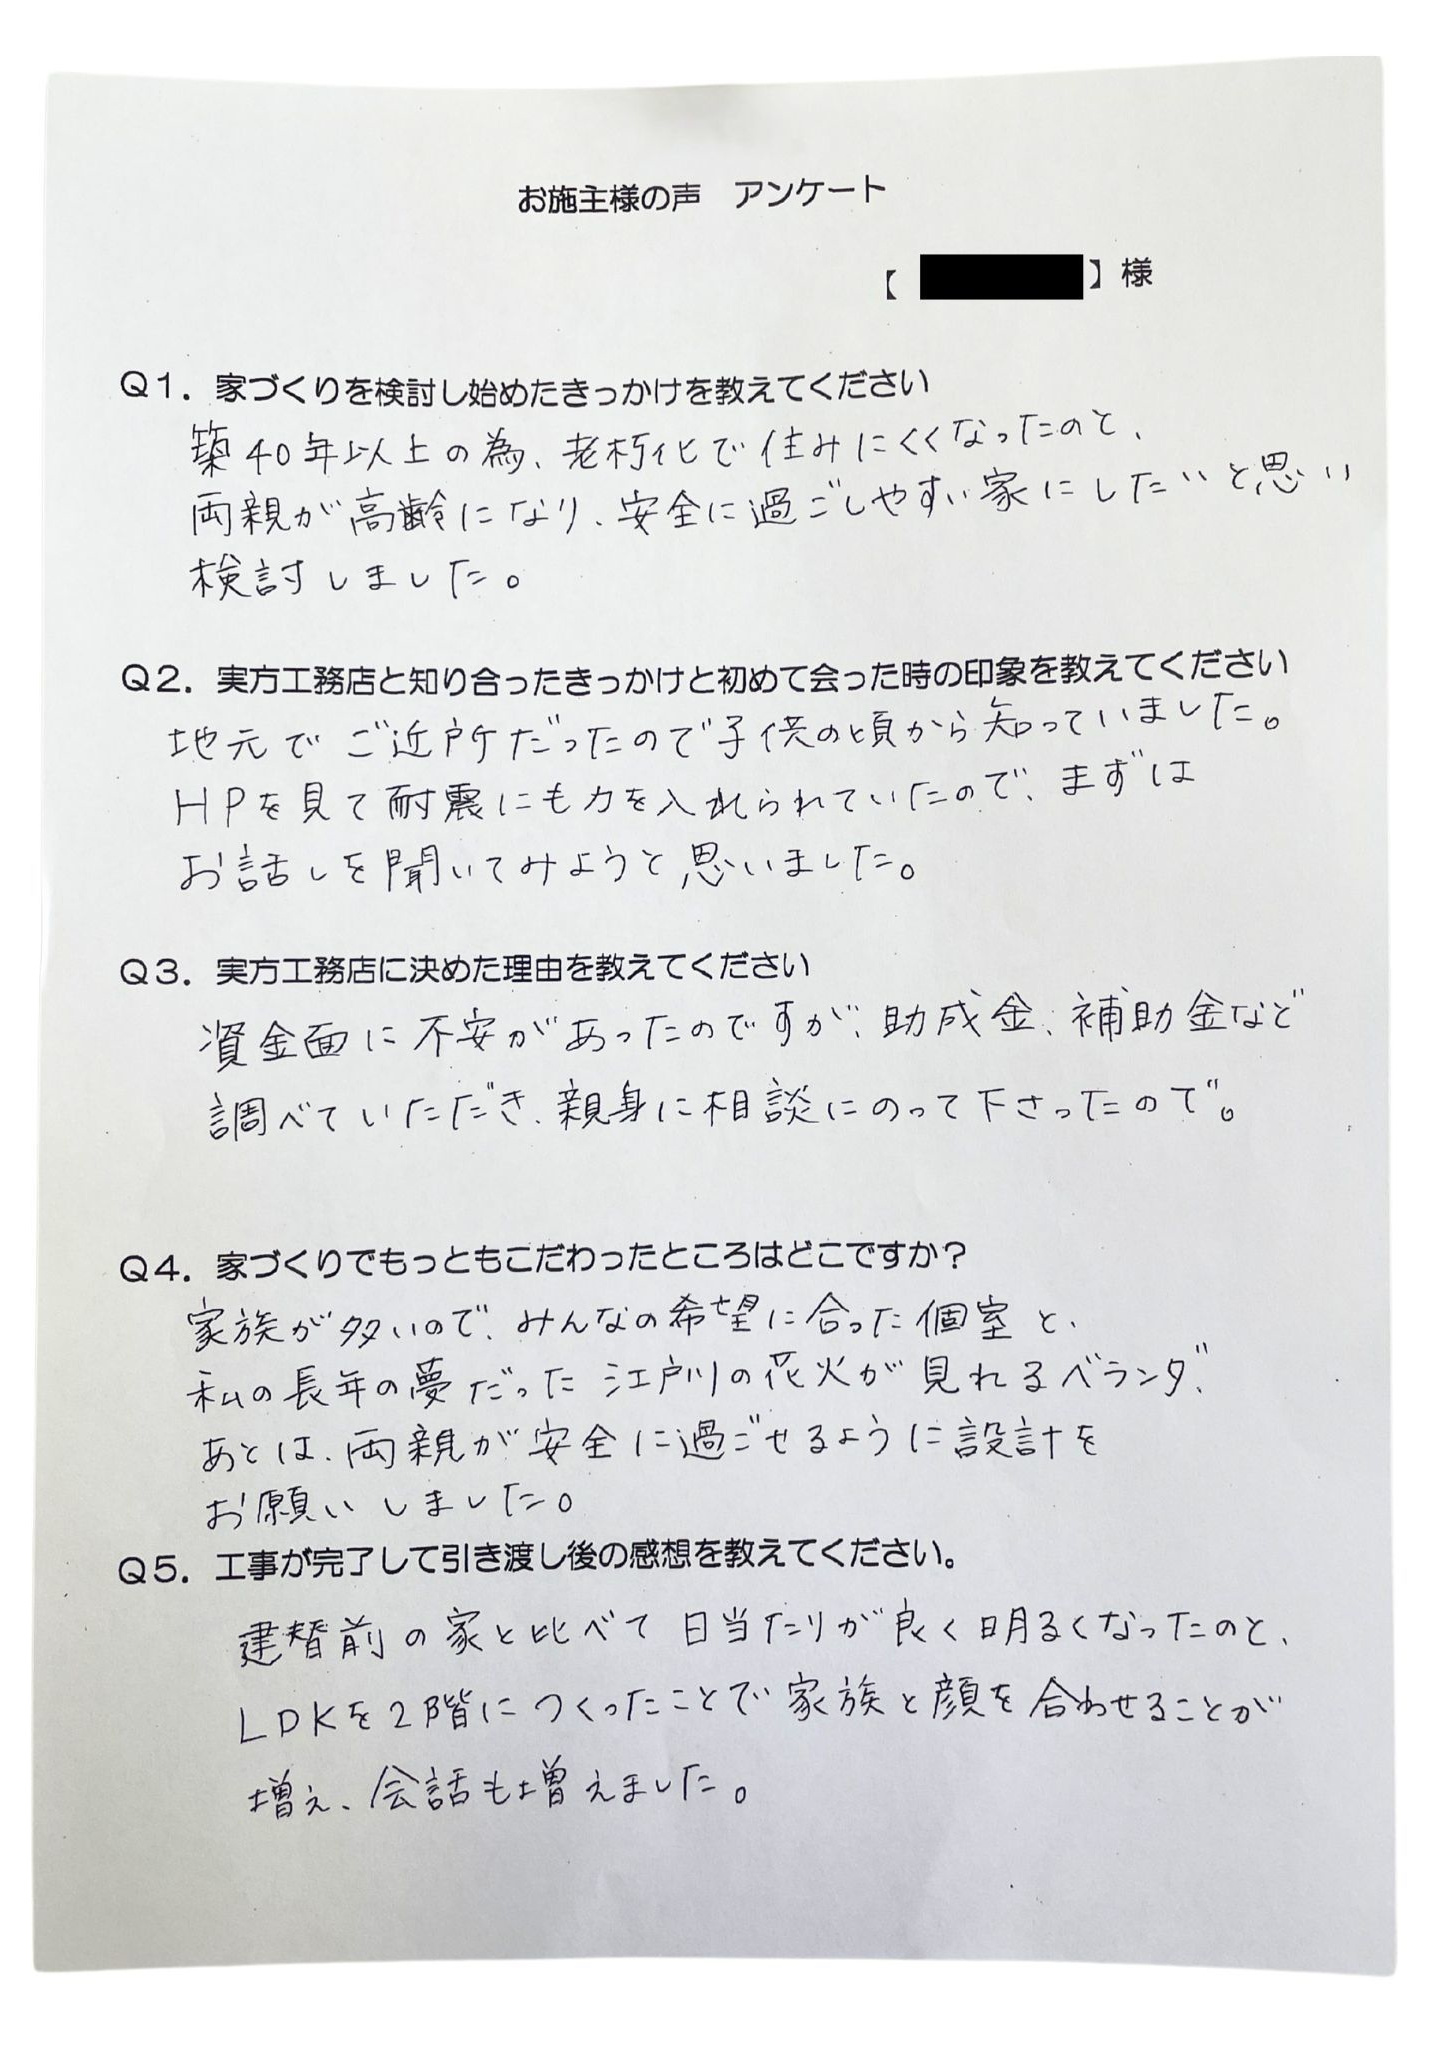 お施主様の声　アンケート
【　　　】様
Q1．家づくりを検討し始めたきっかけを教えてください
築40年以上の為、老朽化で住みにくくなったのと、
両親が高齢になり、安全に過ごしやすい家にしたいと思い
検討しました。
Q2．実方工務店と知り合ったきっかけと初めて会った時の印象を教えてください
地元でご近所だったので子供の頃から知っていました。
HPを見て耐震にも力を入れられていたので、まずは
お話しを聞いてみようと思いました。
Q3．実方工務店に決めた理由を教えてください
資金面に不安があったのですが、助成金、補助金など
調べていただき、親身に相談にのって下さったので。
Q4．家づくりでもっともこだわったところはどこですか？
家族が多いので、みんなの希望に合った個室と、
私の長年の夢だった江戸川の花火が見れるベランダ、
あとは、両親が安全に過ごせるように設計を
お願いしました。
Q5．工事が完了して引き渡し後の感想を教えてください。
建替前の家と比べて日当たりが良く明るくなったのと、
LDKを2階につくったことで家族と顔を合わせることが
増え、会話も増えました。